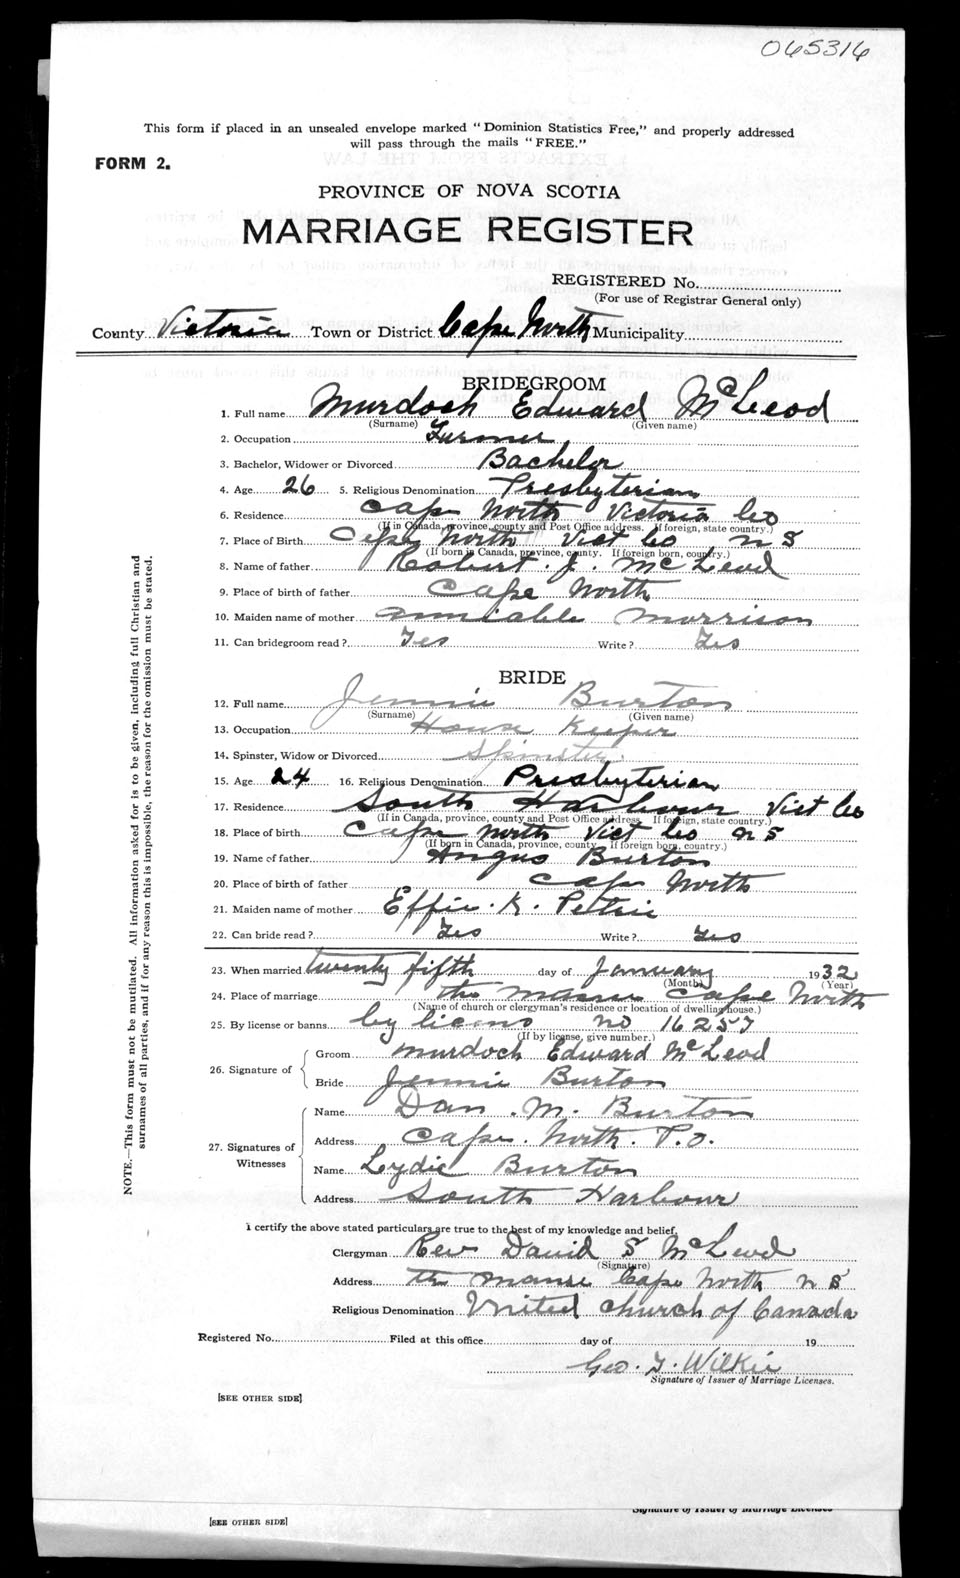 065316
This form if placed in an unsealed envelope marked "Dominion Statistics Free," and properly addressed
will pass through the mails "FREE."
FORM 2.
PROVINCE OF NOVA SCOTIA
MARRIAGE REGISTER
REGISTERED No.
(For use of Registrar General only)
County Victoria Town or District Cape North Municipality
BRIDEGROOM
1. Full name Murdoch Edward McLeod
(Surname) (Given name)
2. Occupation Farmer
3. Bachelor, Widower or Divorced Bachelor
4. Age 26 5. Religious Denomination Presbyterian
6. Residence Cape North Victoria Co
(If in Canada, province, county and Post Office address. If foreign, state country.)
7. Place of Birth Cape North Vict Co N S
(If born in Canada, province, county. If foreign born, country.)
8. Name of father Robert J. McLeod
9. Place of birth of father Cape North
10. Maiden name of mother Morrison
11. Can bridegroom read? Yes Write? Yes
BRIDE
12. Full name Jennie Burton
(Surname) (Given name)
13. Occupation House Keeper
14. Spinster, Widow or Divorced Spinster
15. Age 24 16. Religious Denomination Presbyterian
17. Residence South Harbour Vict Co
(If in Canada, province, county and Post Office address. If foreign, state country.)
18. Place of birth Cape North Vict Co N S
(If born in Canada, province, county. If foreign born, country.)
19. Name of father Angus Burton
20. Place of birth of father Cape North
21. Maiden name of mother Effie. K. Petrie
22. Can bride read? Yes Write? Yes
23. When married twenty fifth day of January 1932
(Month) (Year)
24. Place of marriage the manse Cape North
(Name of church or clergyman's residence or location of dwelling house.)
25. By license or banns by licens no 16257
(If by license, give number.)
26. Signature of
Groom Murdoch Edward McLeod
Bride Jennie Burton
27. Signatures of Witnesses
Name Dan. M. Burton
Address Cape. North. P.O.
Name Lydie Burton
Address South Harbour
I certify the above stated particulars are true to the best of my knowledge and belief.
Clergyman Rev David S McLeod
(Signature)
Address the manse Cape North N S
Religious Denomination United church of Canada
Registered No. Filed at this office day of 19
Geo. T. Wilkie
Signature of Issuer of Marriage Licenses.
[SEE OTHER SIDE]
NOTE.—This form must not be mutilated. All information asked for is to be given, including full Christian and
surnames of all parties, and if for any reason this is impossible, the reason for the omission must be stated.
Signature of Issuer of Marriage Licenses
[SEE OTHER SIDE]